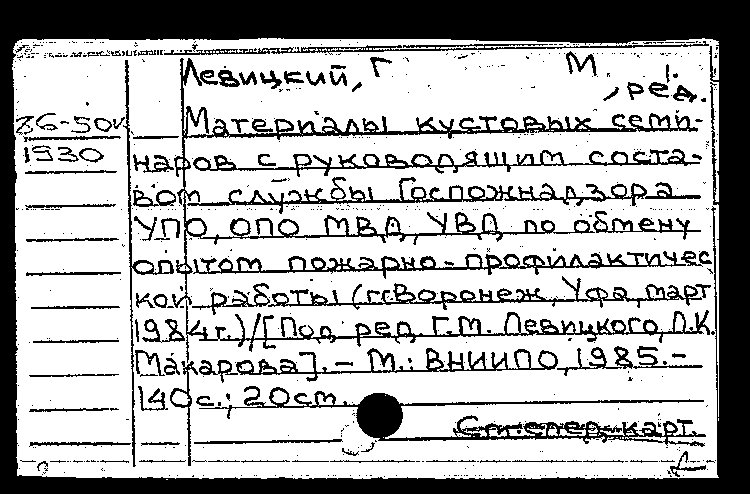 Левицкий, Г. М.
, ред.
86-50к
1930
Материалы кустовых семи-
наров с руководящим соста-
вом службы Госпожнадзора
УПО, ОПО МВД, УВД по обмену
опытом пожарно-профилактичес
кой работы (гг. Воронеж, Уфа, март
1984г.)/[Под ред. Г.М. Левицкого, Л.К.
Макарова]. – М.: ВНИИПО, 1985. –
140с.; 20см.